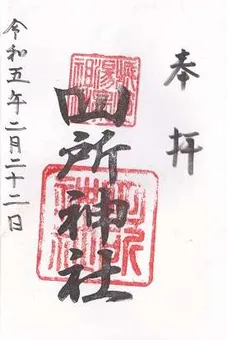 奉拝
四所神社
令和五年二月二十二日